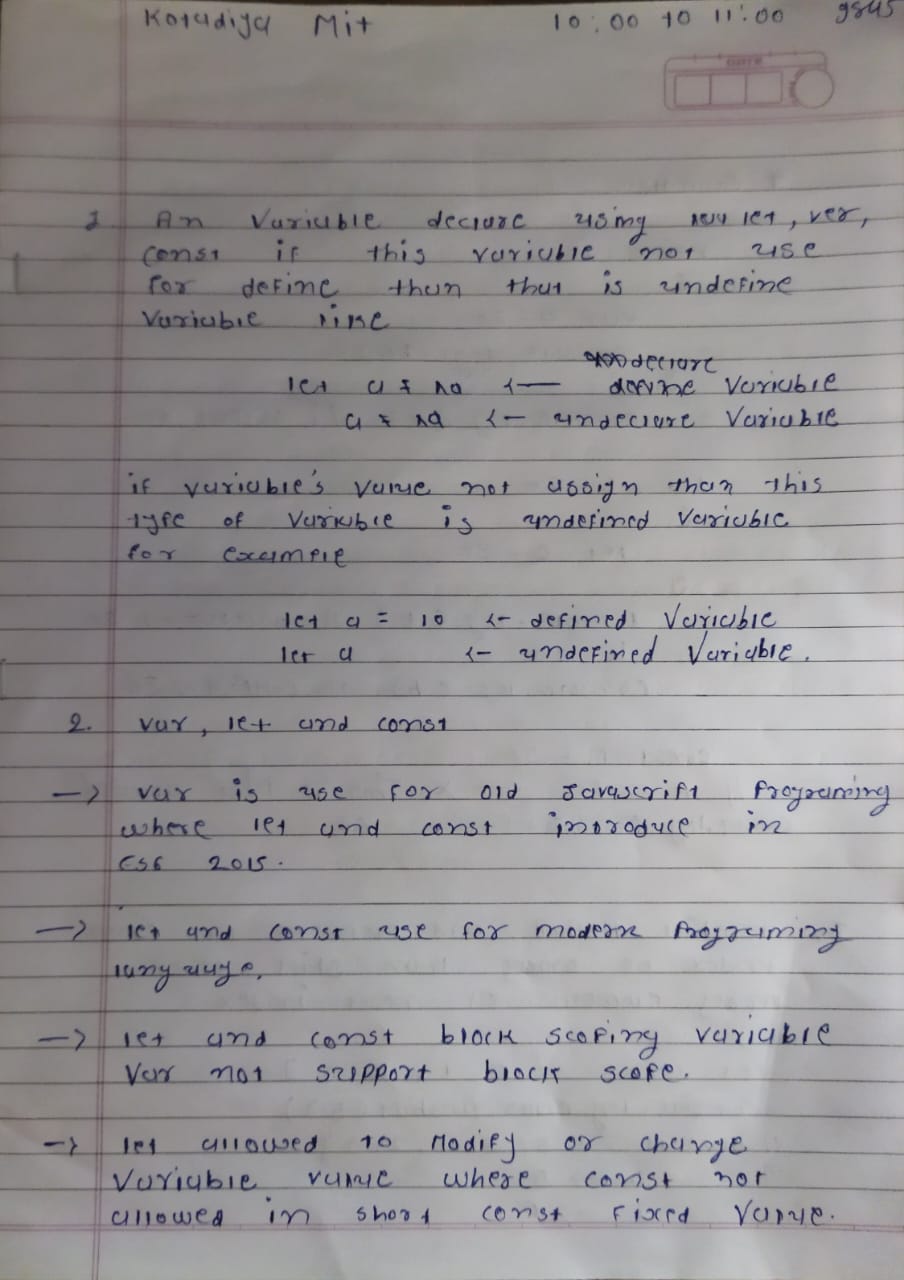 Koradiya Mit 10:00 to 11:00
1. An Variable declare using let, ver,
const if this variable not use
for define than that is undefine
Variable
declare
let a = 10 <— define Variable
a = 10 <- undeclare Variable
if variable's value not assign than this
type of Variable is undefined Variable
for example
let a = 10 <- defined Variable
let a <- undefined Variable.
2. var, let and const
-> var is use for old Javascript Programing
where let and const introduce in
ES6 2015.
-> let and const use for modern Programing
language.
-> let and const block scoping variable
Var not support block scope.
-> let allowed to Modify or change
Variable value where const not
allowed in short const fixed Value.